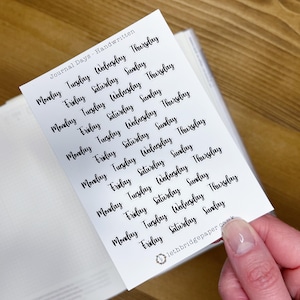 Journal Days - Handwritten
Monday Tuesday Wednesday Thursday
Friday Saturday Sunday
Monday Tuesday Wednesday Thursday
Friday Saturday Sunday
Monday Tuesday Wednesday Thursday
Friday Saturday Sunday
Monday Tuesday Wednesday Thursday
Friday Saturday Sunday
Monday Tuesday Wednesday Thursday
Friday Saturday Sunday
Monday Tuesday Wednesday Thursday
Friday Saturday Sunday